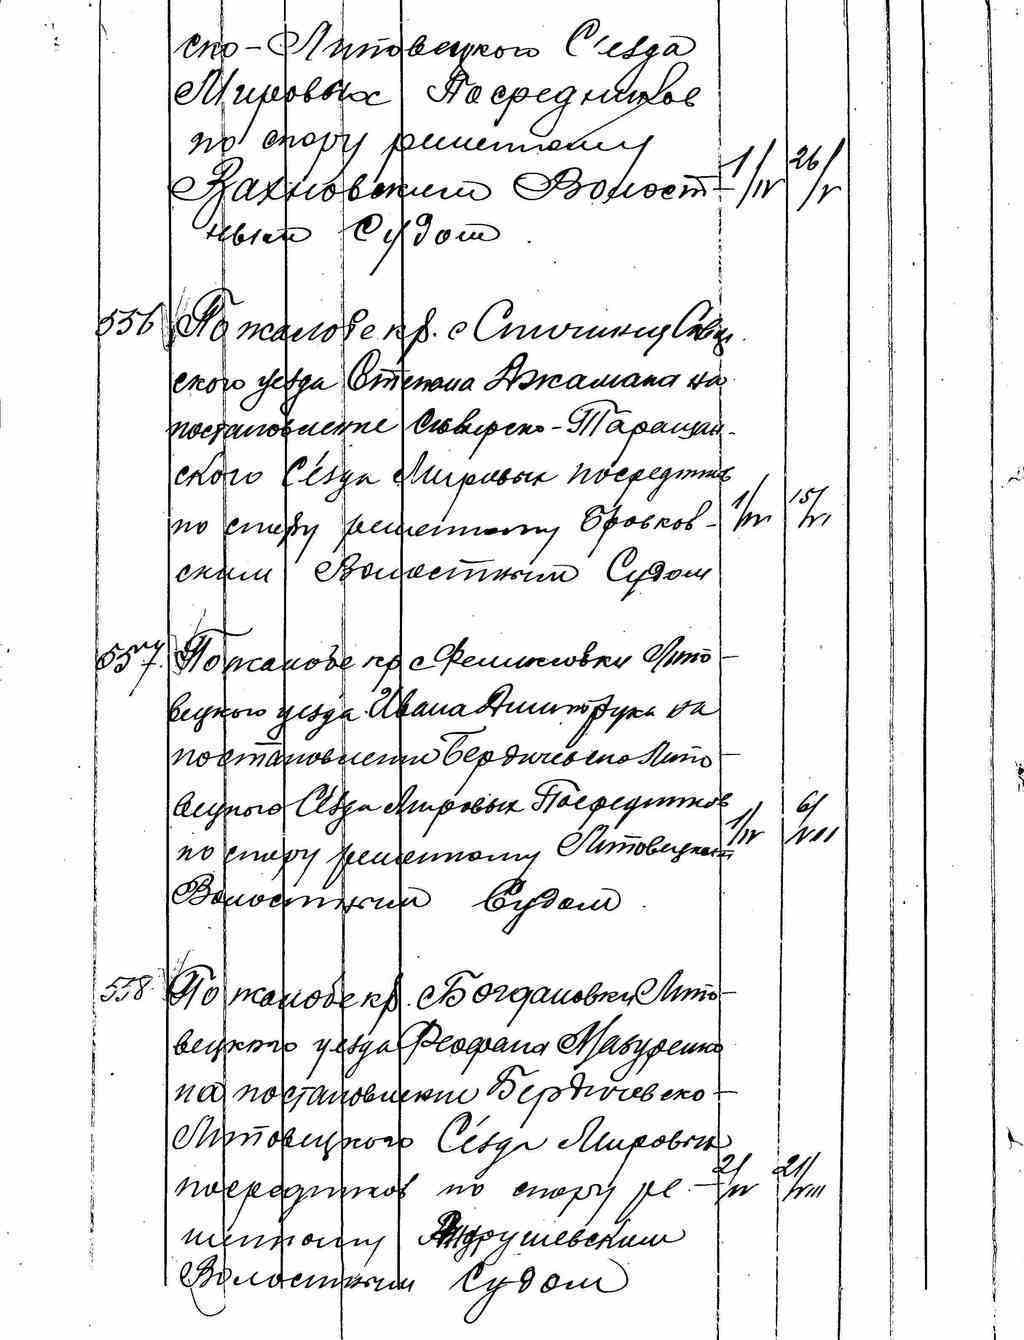 ско-Липовецкого С'езда
Мировых Посредников
по спору решенному
Вахновским Волост- 1/IV 26/V
ным Судом.
556 По жалобе кр. с Спичинец Сквир
ского уезда Степана Джамана на
постановление Сквирско-Таращан-
ского С'езда Мировых посредников
по спору решенному Бровков- 1/IV 15/VI
ским Волостным Судом
557 По жалобе кр с Фелиновки Липо-
вецкого уезда Ивана Дмитрука на
постановление Бердичевско Липо-
вецкого С'езда Мировых Посредников
по спору решенному Липовецким 1/IV 6/VIII
Волостным Судом.
558 По жалобе кр. с Богдановки Липо-
вецкого уезда Феофана Мазуренко
на постановление Бердичевско-
Липовецкого С'езда Мировых
посредников по спору ре- 2/IV 21/VIII
шенному Андрушевским
Волостным Судом